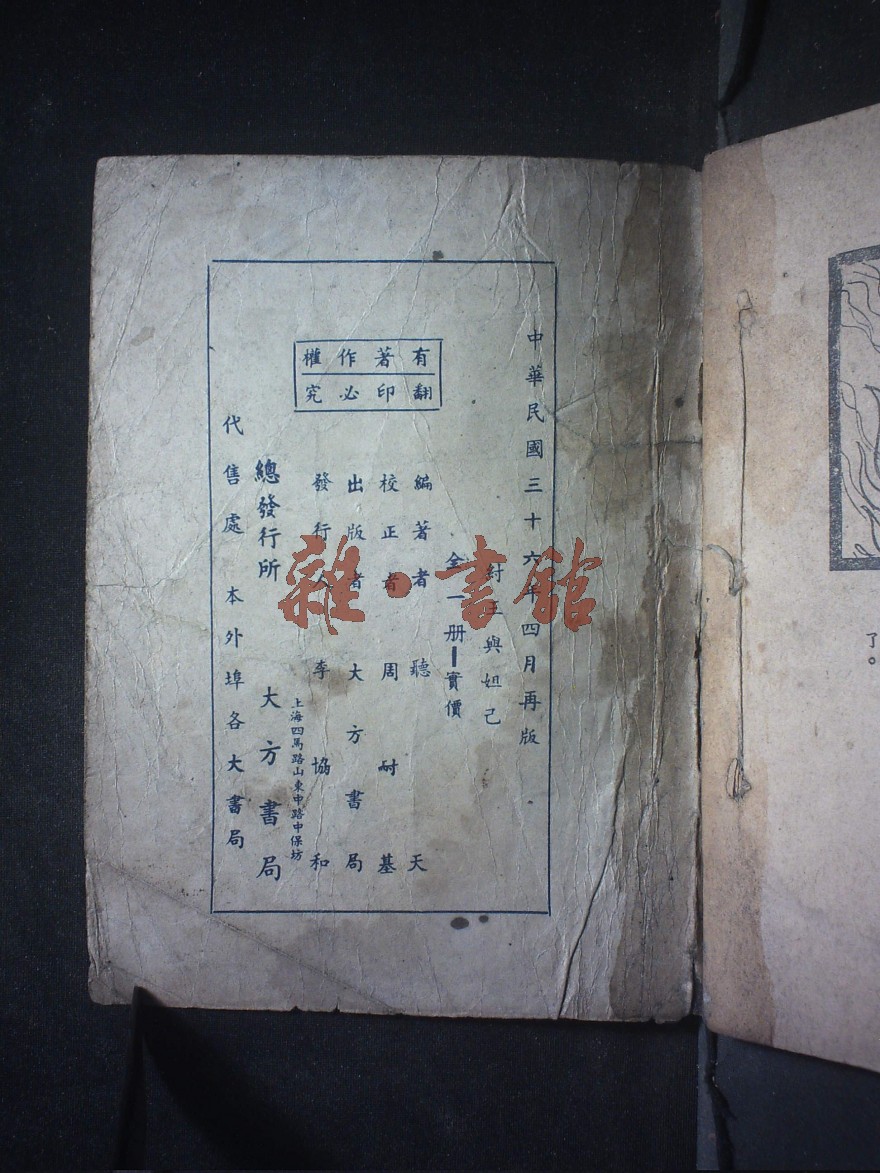 中華民國三十六年四月再版
封王與妲己
全一册━實價
有著作權
翻印必究
編著者 聽天
校正者 周耐基
出版者 大方書局
發行人 李協和
上海四馬路山東中路中保坊
總發行所 大方書局
代售處 本外埠各大書局
雜·書館
了。